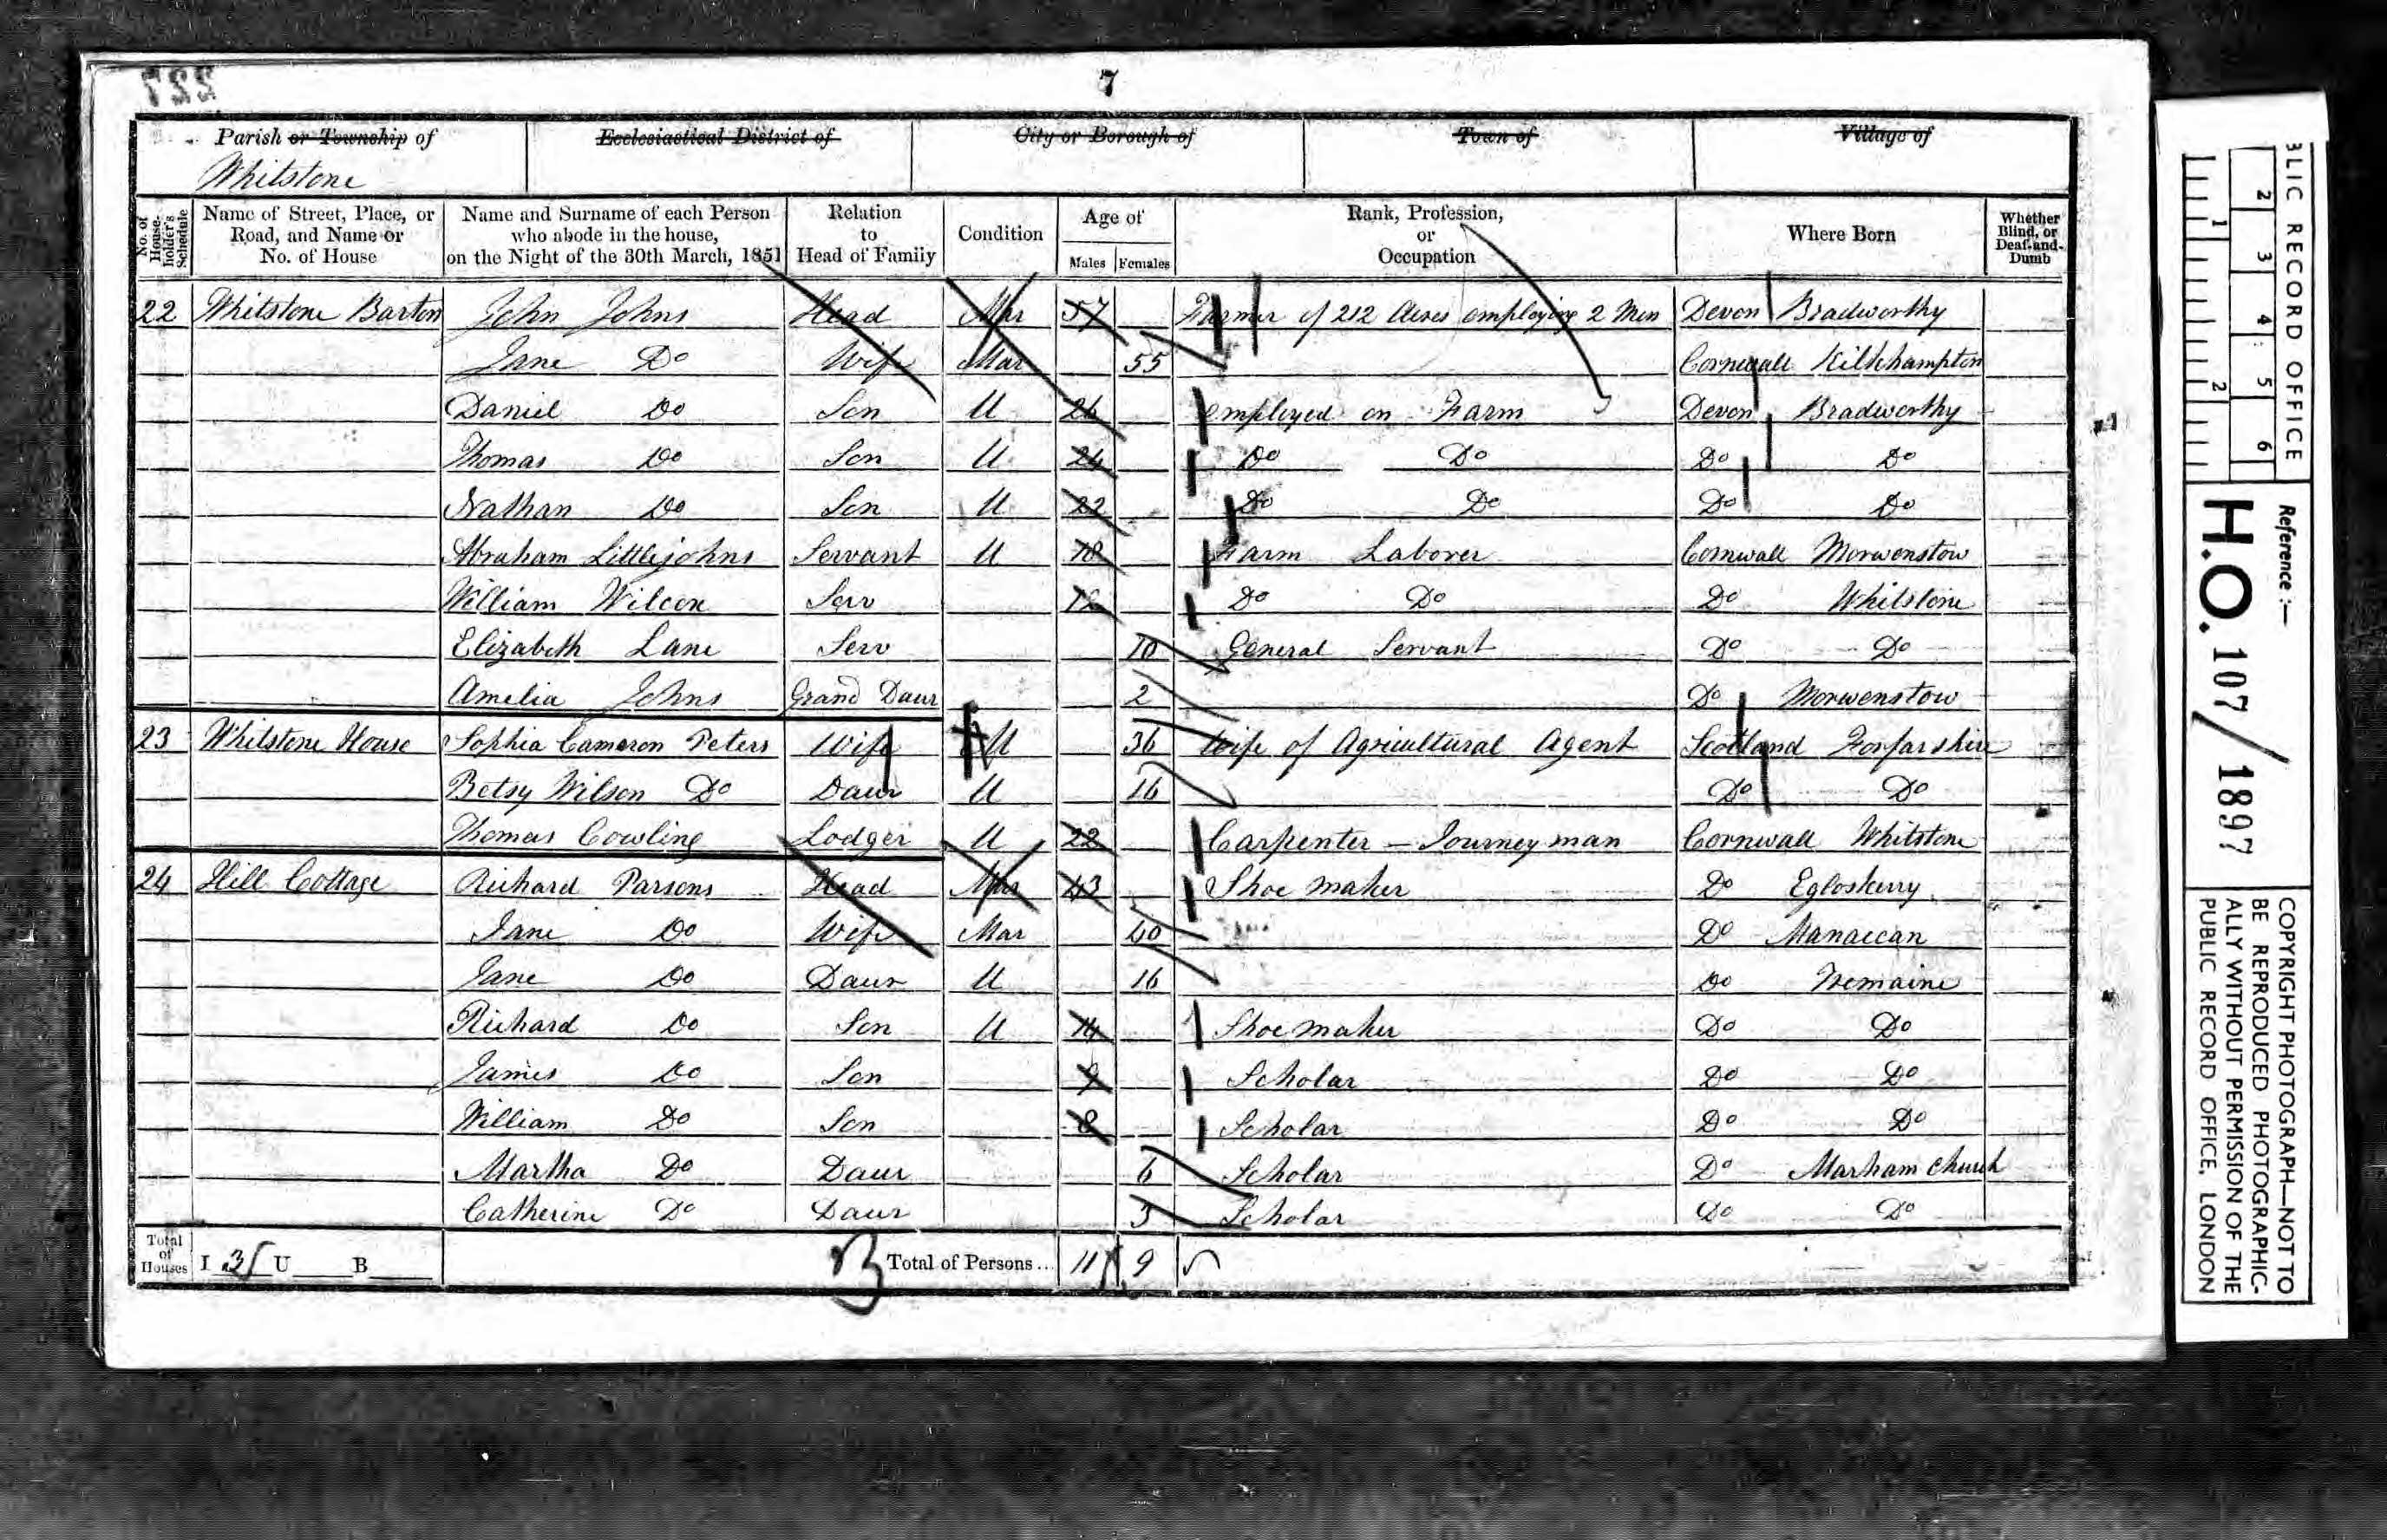 7
Parish or Township of Ecclesiastical District of City or Borough of Town of Village of
Whitstone
No. of House-holder's Schedule Name of Street, Place, or Road, and Name or No. of House Name and Surname of each Person who abode in the house, on the Night of the 30th March, 1851 Relation to Head of Family Condition Age of Males Females Rank, Profession, or Occupation Where Born Whether Blind, or Deaf-and-Dumb
22 Whitstone Barton John Johns Head Mar 57 Farmer of 212 Acres employing 2 Men Devon Bradworthy
Jane Do Wife Mar 55 Cornwall Kilkhampton
Daniel Do Son U 26 employed on Farm Devon Bradworthy
Thomas Do Son U 24 Do Do Do Do
Nathan Do Son U 22 Do Do Do Do
Abraham Littlejohns Servant U 18 Farm Laborer Cornwall Morwenstow
William Wilcox Serv 12 Do Do Do Whitstone
Elizabeth Lane Serv 10 General Servant Do Do
Amelia Johns Grand Daur 2 Do Morwenstow
23 Whitstone House Sophia Cameron Peters Wife U 36 Wife of Agricultural Agent Scotland Forfarshire
Betsy Wilson Do Daur U 16 Do Do
Thomas Cowling Lodger U 22 Carpenter – Journeyman Cornwall Whitstone
24 Hill Cottage Richard Parsons Head Mar 43 Shoe maker Do Egloskerry
Jane Do Wife Mar 40 Do Manaccan
Jane Do Daur U 16 Do Tremaine
Richard Do Son U 14 Shoe maker Do Do
James Do Son 9 Scholar Do Do
William Do Son 8 Scholar Do Do
Martha Do Daur 6 Scholar Do Marham church
Catherine Do Daur 3 Scholar Do Do
Total of Houses I 3 U B Total of Persons... 11 9
BLIC RECORD OFFICE
1 2
2 3 4 5 6
Reference :—
H.O. 107/1897
COPYRIGHT PHOTOGRAPH—NOT TO
BE REPRODUCED PHOTOGRAPHIC-
ALLY WITHOUT PERMISSION OF THE
PUBLIC RECORD OFFICE, LONDON